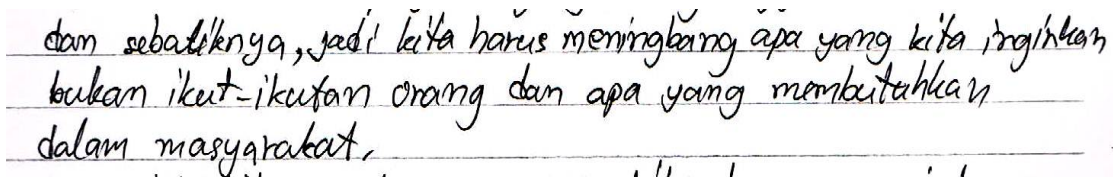 dan sebaliknya, jadi kita harus meningbang apa yang kita inginkan
bukan ikut-ikutan orang dan apa yang membutuhkan
dalam masyarakat.